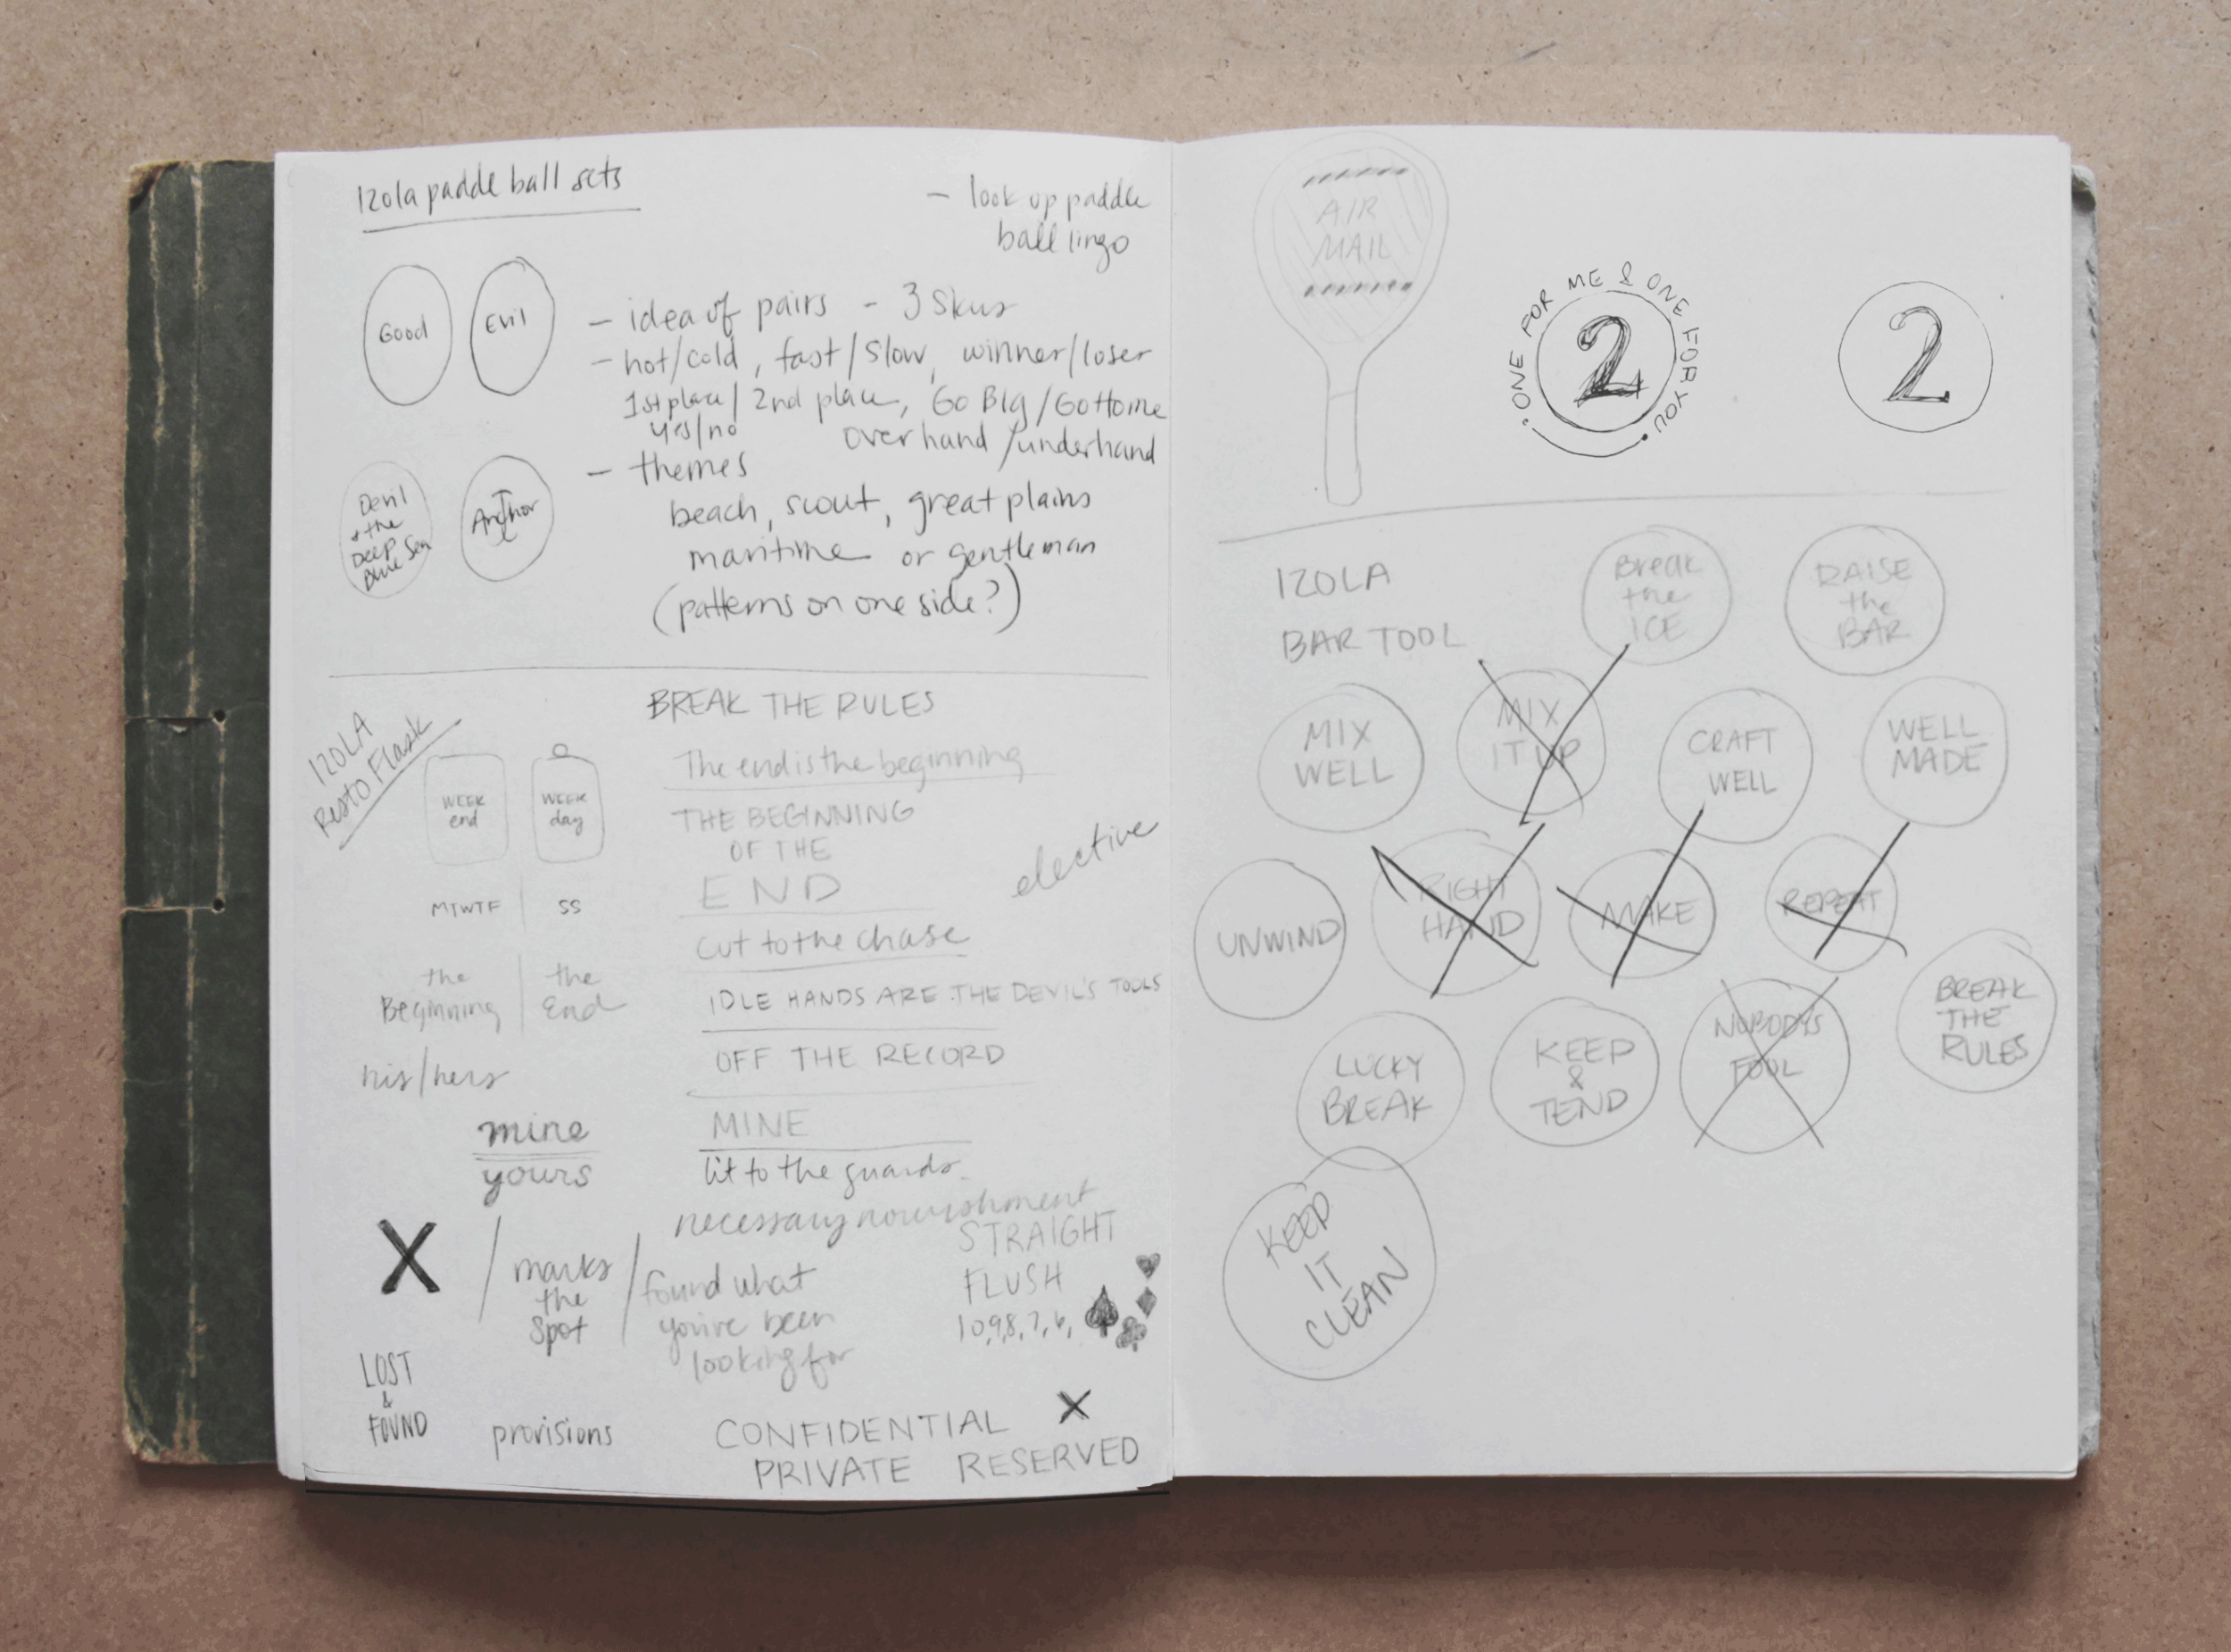 Izola paddle ball sets
- look up paddle
ball lingo
Good
Evil
- idea of pairs - 3 skus
- hot/cold, fast/slow, winner/loser
1st place/2nd place, Go Big/Go Home
yes/no
overhand/underhand
Devil
& the
Deep
Blue Sea
Anchor
- themes
beach, scout, great plains
maritime or gentleman
(patterns on one side?)
IZOLA
Resto Flask
BREAK THE RULES
WEEK
end
WEEK
day
The end is the beginning
THE BEGINNING
OF THE
END
elective
MTWTF
SS
cut to the chase
the
Beginning
the
End
IDLE HANDS ARE THE DEVIL'S TOOLS
his/hers
OFF THE RECORD
mine
yours
MINE
lit to the guards.
necessary nourishment
X / marks
the
spot
/ found what
you've been
looking for
STRAIGHT
FLUSH
10,9,8,7,6,
LOST
&
FOUND
provisions
CONFIDENTIAL X
PRIVATE RESERVED
AIR
MAIL
ONE FOR ME & ONE FOR YOU
2
2
IZOLA
BAR TOOL
Break
the
ICE
RAISE
the
BAR
MIX
WELL
MIX
IT UP
CRAFT
WELL
WELL
MADE
UNWIND
RIGHT
HAND
MAKE
REPEAT
LUCKY
BREAK
KEEP
&
TEND
NOBODYS
FOOL
BREAK
THE
RULES
KEEP
IT
CLEAN